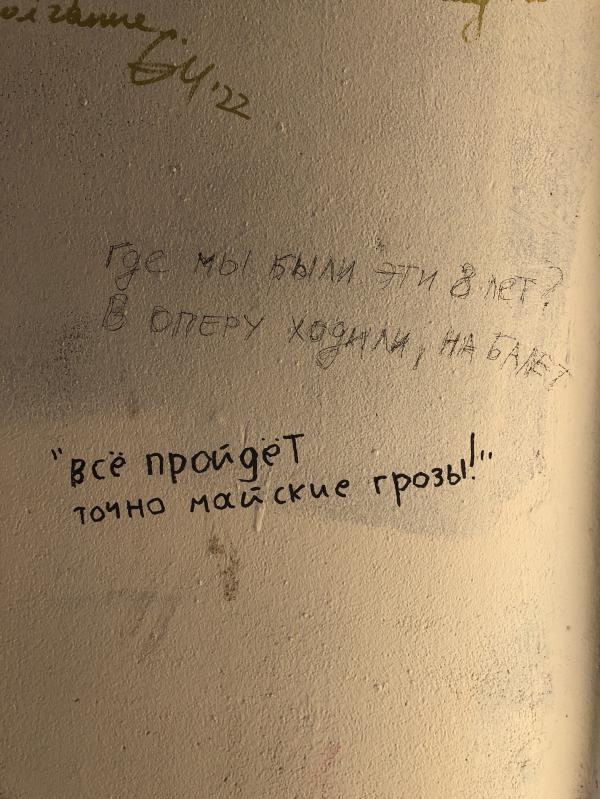 '22
где мы были эти 8 лет?
В оперу ходили, на балет
"всё пройдёт
точно майские грозы!"